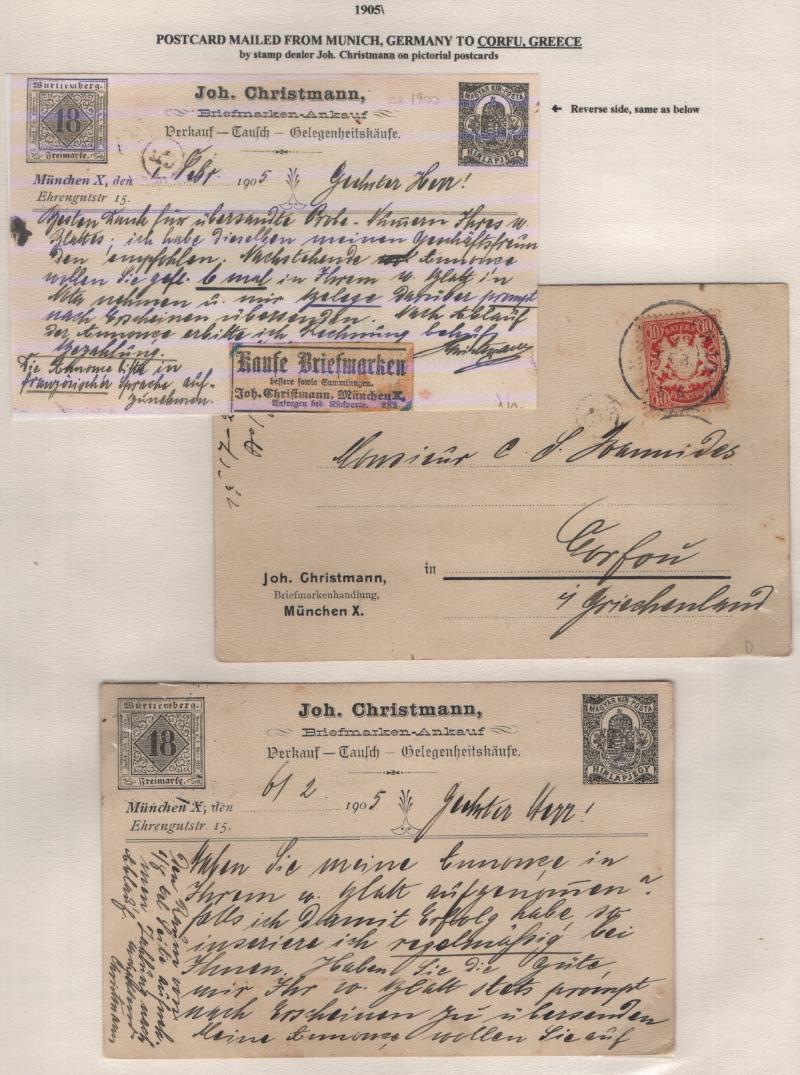 1905\
POSTCARD MAILED FROM MUNICH, GERMANY TO CORFU, GREECE
by stamp dealer Joh. Christmann on pictorial postcards
← Reverse side, same as below
Württemberg.
18
Freimarke.
Joh. Christmann,
Briefmarken-Ankauf
Verkauf — Tausch — Gelegenheitskäufe.
MAGYAR KIR. POSTA
HIRLAPJEGY
ca 1900
München X, den 1. Febr. 1905
Ehrengutstr 15.
Geehrter Herr!
Besten Dank für übersandte Probe-Nummern Ihres w.
Blattes; ich habe dieselben meinen Geschäftsfreun
den empfohlen. Nachstehende Annonce
wollen Sie gefl. 6 mal in Ihrem w. Blatt in
Nota nehmen u. mir Belege darüber prompt
nach Erscheinen übersenden. Nach Ablauf
der Annonce erbitte ich Rechnung behufs
Bezahlung.
Christmann
Die Annonce bitte in
französischer Sprache auf-
zunehmen.
Kaufe Briefmarken
bessere sowie Sammlungen.
Joh. Christmann, München X,
Anfragen bed. Rückporto. 283
10 BAYERN 10
10 PFENNIG 10
Monsieur C. S. Ioannides
in Corfou
i/ Griechenland
Joh. Christmann,
Briefmarkenhandlung,
München X.
D
Württemberg.
18
Freimarke.
Joh. Christmann,
Briefmarken-Ankauf
Verkauf — Tausch — Gelegenheitskäufe.
MAGYAR KIR. POSTA
HIRLAPJEGY
München X, den 6/ 2 1905
Ehrengutstr 15.
Geehrter Herr!
Haben Sie meine Annonce in
Ihrem w. Blatt aufgenommen?
falls ich damit Erfolg habe, so
inseriere ich regelmässig bei
Ihnen. Haben Sie die Güte,
mir Ihr w. Blatt stets prompt
nach Erscheinen zu übersenden
Meine Annonce wollen Sie auf
den Raum von
1/8 bei Seite aufneh.
men Zahlung nach
Ablauf
Christmann